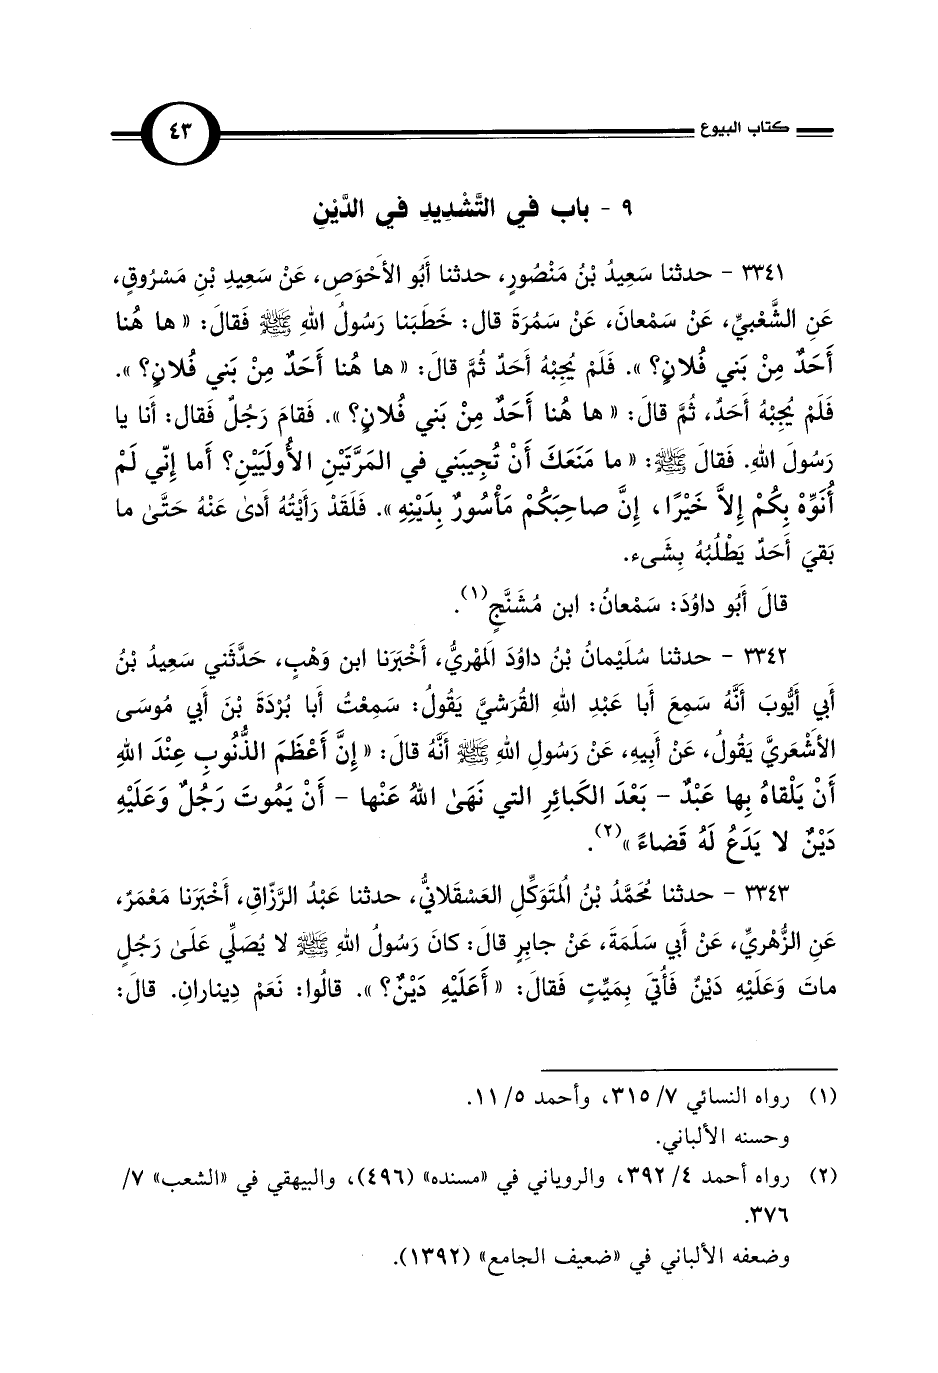 كتاب البيوع
٤٣
٩ - باب في التَّشْدِيدِ في الدَّيْنِ
٣٣٤١ - حدثنا سَعِيدُ بْنُ مَنْصُورٍ، حدثنا أَبُو الأَحْوَصِ، عَنْ سَعِيدِ بْنِ مَسْرُوقٍ،
عَنِ الشَّعْبيِّ، عَنْ سَمْعانَ، عَنْ سَمُرَةَ قال: خَطَبَنا رَسُولُ اللهِ ﷺ فَقالَ: « ها هُنا
أَحَدٌ مِنْ بَني فُلانٍ؟ ». فَلَمْ يُجِبْهُ أَحَدٌ ثُمَّ قالَ: « ها هُنا أَحَدٌ مِنْ بَني فُلانٍ؟ ».
فَلَمْ يُجِبْهُ أَحَدٌ، ثُمَّ قالَ: « ها هُنا أَحَدٌ مِنْ بَني فُلانٍ؟ ». فَقامَ رَجُلٌ فَقال: أَنا يا
رَسُولَ اللهِ. فَقالَ ﷺ: « ما مَنَعَكَ أَنْ تُجِيبَني في المَرَّتَيْنِ الأُولَيَيْنِ؟ أَما إِنّي لَمْ
أُنَوِّهْ بِكُمْ إِلاَّ خَيْرًا، إِنَّ صاحِبَكُمْ مَأْسُورٌ بِدَيْنِهِ ». فَلَقَدْ رَأَيْتُهُ أَدىٰ عَنْهُ حَتَّىٰ ما
بَقيَ أَحَدٌ يَطْلُبُهُ بِشَىء.
قالَ أَبُو داوُدَ: سَمْعانُ: ابن مُشَنَّجٍ(١).
٣٣٤٢ - حدثنا سُلَيْمانُ بْنُ داوُدَ المَهْرِيُّ، أَخْبَرَنا ابن وَهْبٍ، حَدَّثَني سَعِيدُ بْنُ
أَبي أَيُّوبَ أَنَّهُ سَمِعَ أَبا عَبْدِ اللهِ القُرَشيَّ يَقُولُ: سَمِعْتُ أَبا بُرْدَةَ بْنَ أَبي مُوسَى
الأَشْعَرِيَّ يَقُولُ، عَنْ أَبِيهِ، عَنْ رَسُولِ اللهِ ﷺ أَنَّهُ قالَ: « إِنَّ أَعْظَمَ الذُّنُوبِ عِنْدَ اللهِ
أَنْ يَلْقاهُ بِها عَبْدٌ - بَعْدَ الكَبائِرِ التي نَهَىٰ اللهُ عَنْها - أَنْ يَمُوتَ رَجُلٌ وَعَلَيْهِ
دَيْنٌ لا يَدَعُ لَهُ قَضاءً »(٢).
٣٣٤٣ - حدثنا مُحَمَّدُ بْنُ المُتَوَكِّلِ العَسْقَلانيُّ، حدثنا عَبْدُ الرَّزّاقِ، أَخْبَرَنا مَعْمَرٌ،
عَنِ الزُّهْريِّ، عَنْ أَبي سَلَمَةَ، عَنْ جابِرٍ قالَ: كانَ رَسُولُ اللهِ ﷺ لا يُصَلِّي عَلَىٰ رَجُلٍ
ماتَ وَعَلَيْهِ دَيْنٌ فَأُتيَ بِمَيِّتٍ فَقالَ: « أَعَلَيْهِ دَيْنٌ؟ ». قالُوا: نَعَمْ دِينارانِ. قالَ:
(١) رواه النسائي ٧/ ٣١٥، وأحمد ٥/ ١١.
وحسنه الألباني.
(٢) رواه أحمد ٤/ ٣٩٢، والروياني في «مسنده» (٤٩٦)، والبيهقي في «الشعب» ٧/
٣٧٦.
وضعفه الألباني في «ضعيف الجامع» (١٣٩٢).